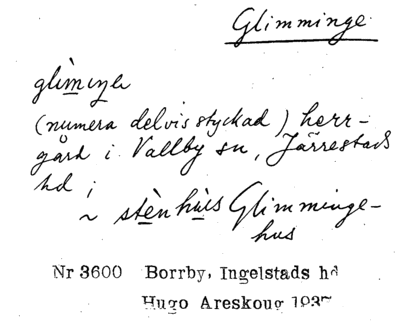 Glimminge
glìmiŋə
(numera delvis styckad) herr-
gård i Vallby sn, Järrestads
hd ;
~ stènhùs Glimminge-
hus
Nr 3600 Borrby, Ingelstads hd
Hugo Areskoug 1937